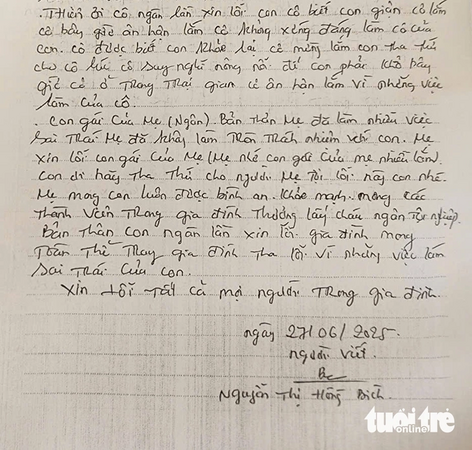 . Thiên ơi cô ngàn lần xin lỗi con cô biết con giận cô lắm
cô bây giờ ân hận lắm cô không xứng đáng làm cô của
con. cô được biết con khỏe lại cô mừng lắm con tha thứ
cho cô lúc cô suy nghĩ nông nổi để con phải khổ bây
giờ cô ở Trong Trại giam cô ân hận lắm vì những việc
làm của cô.
. Con gái của Mẹ (Ngân). Bản Thân Mẹ đã làm nhiều việc
Sai Trái Mẹ đã không làm Tròn Trách nhiệm với con. Mẹ
xin lỗi con gái của Mẹ (Mẹ nhớ con gái của mẹ nhiều lắm).
Con ơi hãy Tha Thứ cho người Mẹ Tội lỗi này con nhé.
Mẹ mong con luôn được bình an. Khỏe mạnh. mong các
Thành viên Trong gia đình Thương lấy cháu ngân Tội nghiệp.
Bản Thân con ngàn lần xin lỗi gia đình mong
Toàn Thể Trong gia đình tha lỗi vì những việc làm
Sai Trái của con.
Xin lỗi Tất cả mọi người Trong gia đình.
ngày 27/06/2025.
người viết.
Bc
Nguyễn Thị Hồng Bích.
tuổi trẻ
online